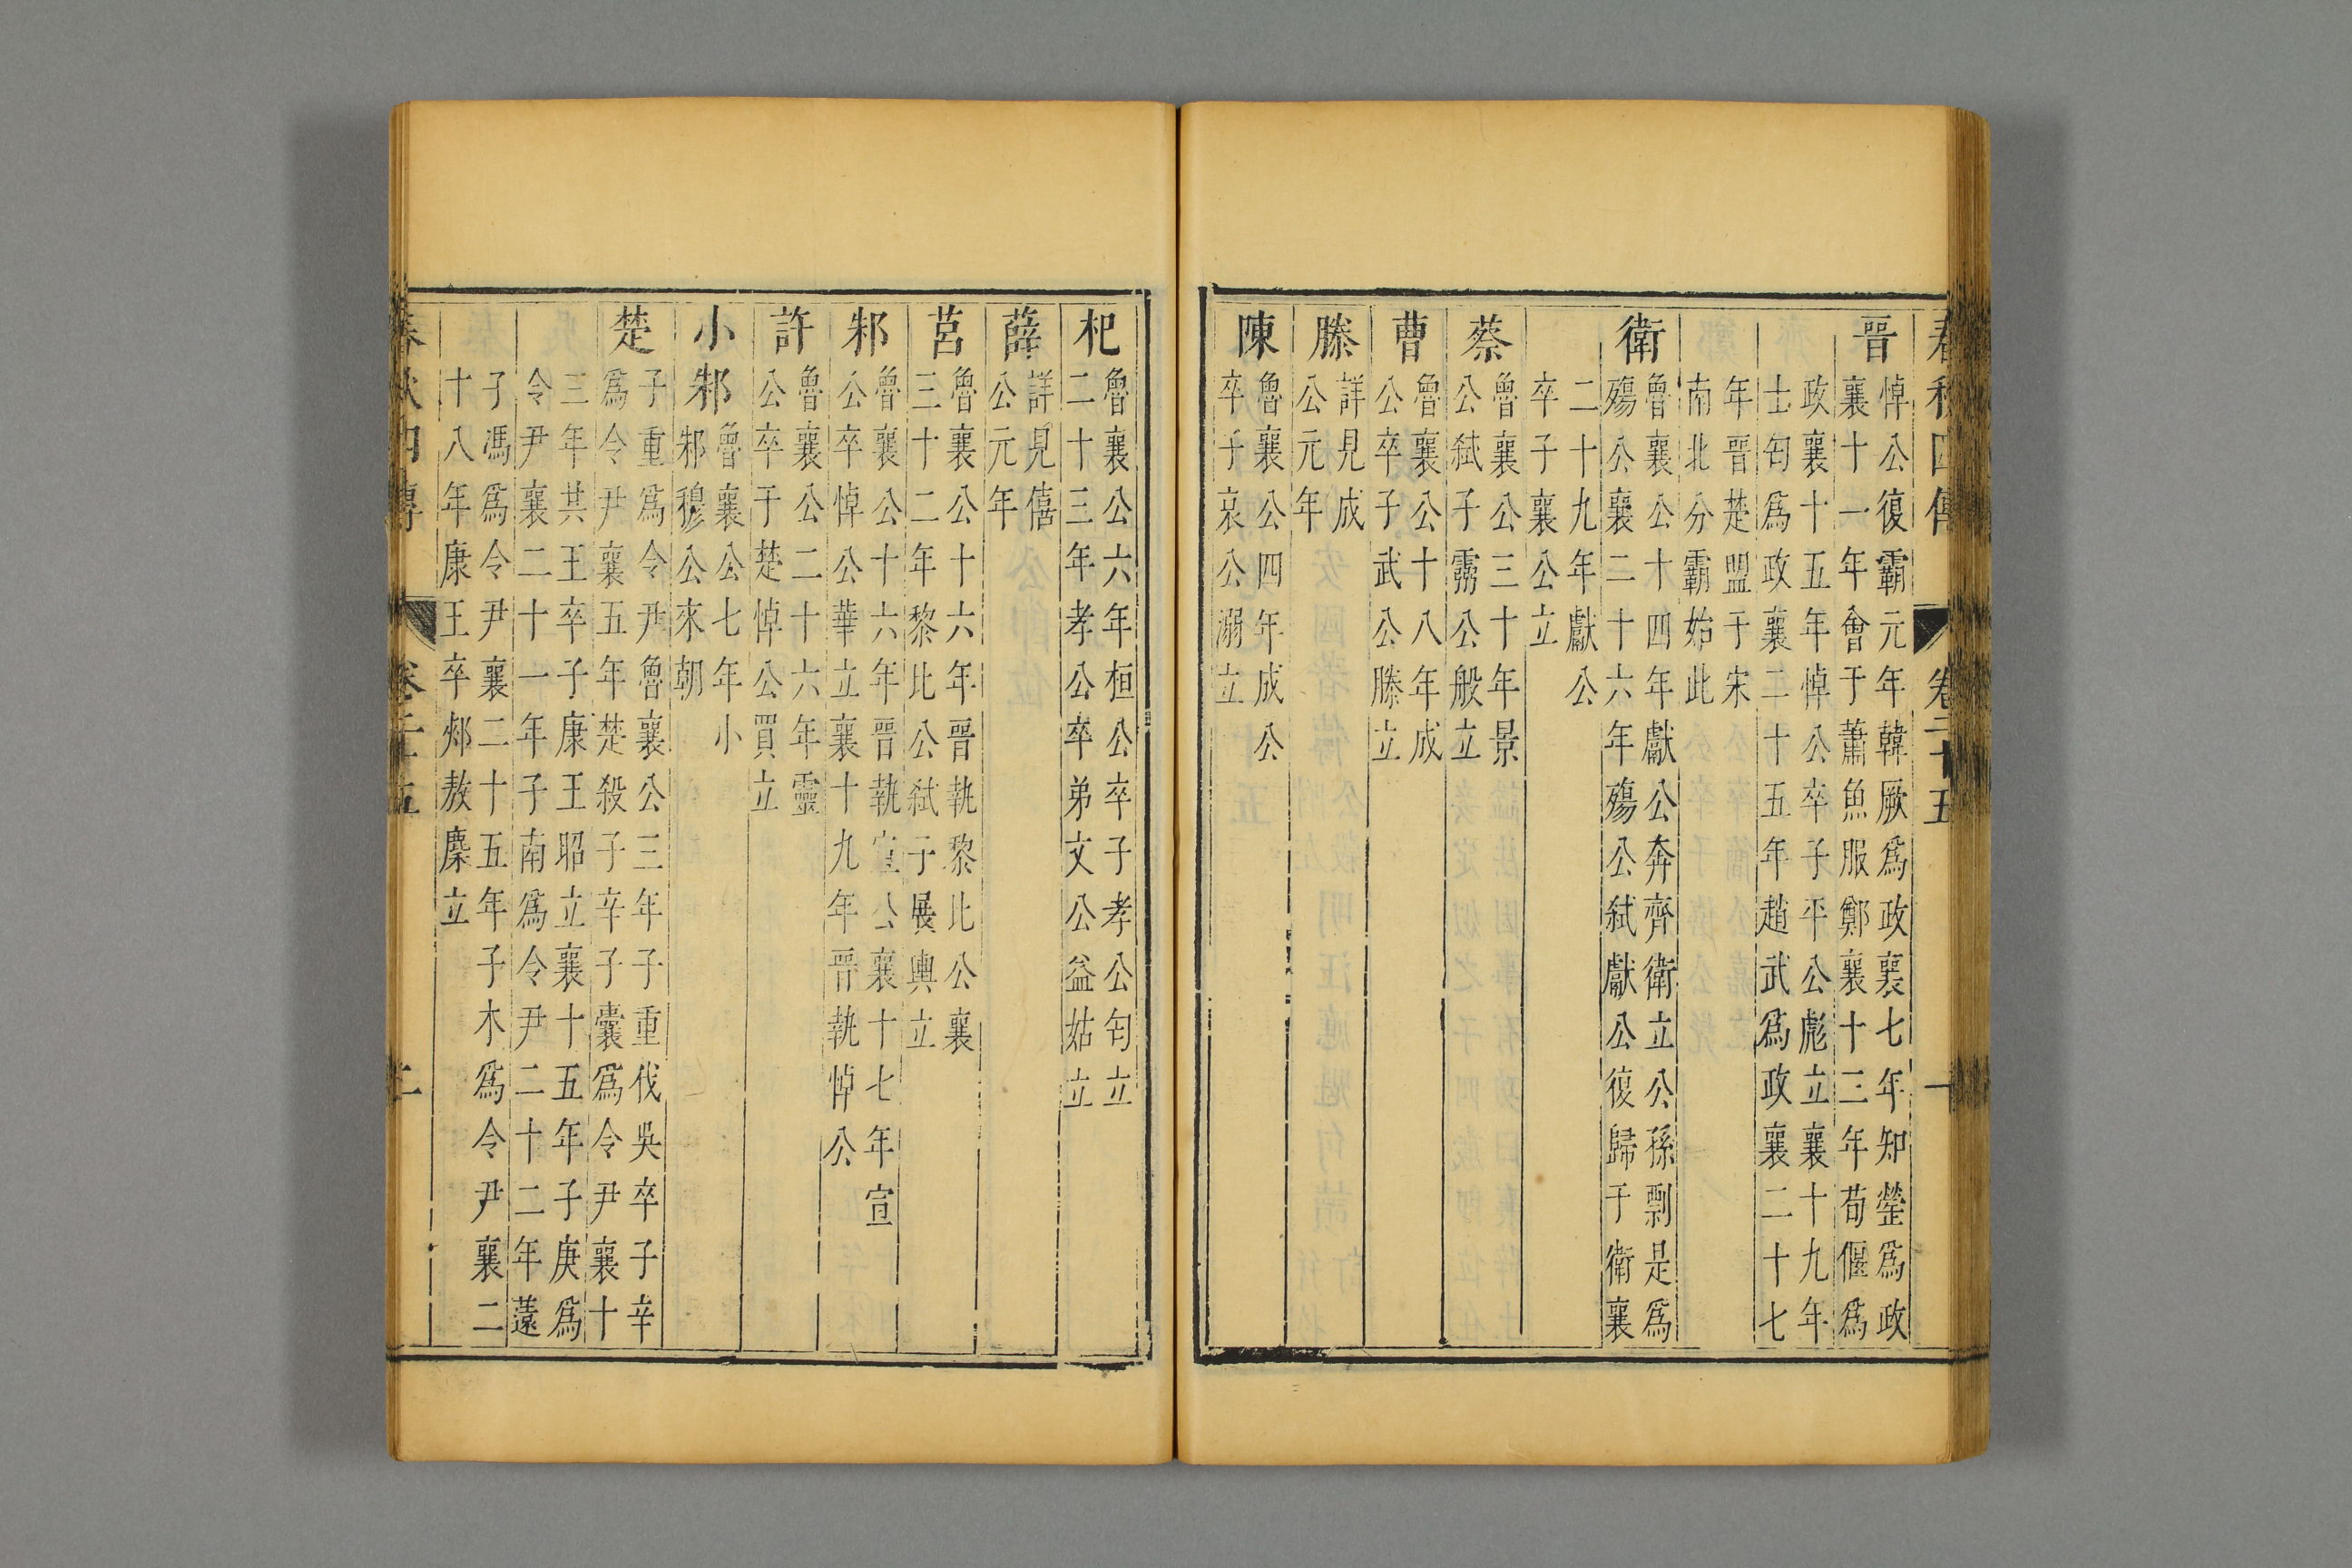 春秋四傳 卷二十五 一
晉
悼公復霸元年韓厥爲政襄七年知罃爲政
襄十一年會于蕭魚服鄭襄十三年荀偃爲
政襄十五年悼公卒子平公彪立襄十九年
士匄爲政襄二十五年趙武爲政襄二十七
年晉楚盟于宋
南北分霸始此
衛
魯襄公十四年獻公奔齊衛立公孫剽是爲
殤公襄二十六年殤公弑獻公復歸于衛襄
二十九年獻公
卒子襄公立
蔡
魯襄公三十年景
公弑子靈公般立
曹
魯襄公十八年成
公卒子武公滕立
滕
詳見成
公元年
陳
魯襄公四年成公
卒子哀公溺立
杞
魯襄公六年桓公卒子孝公匄立
二十三年孝公卒弟文公益姑立
薛
詳見僖
公元年
莒
魯襄公十六年晉執黎比公襄
三十二年黎比公弑子展輿立
邾
魯襄公十六年晉執宣公襄十七年宣
公卒悼公華立襄十九年晉執悼公
許
魯襄公二十六年靈
公卒于楚悼公買立
小邾
魯襄公七年小
邾穆公來朝
楚
子重爲令尹魯襄公三年子重伐吳卒子辛
爲令尹襄五年楚殺子辛子囊爲令尹襄十
三年共王卒子康王昭立襄十五年子庚爲
令尹襄二十一年子南爲令尹二十二年薳
子馮爲令尹襄二十五年子木爲令尹襄二
十八年康王卒郟敖麇立
春秋四傳 卷二十五 二